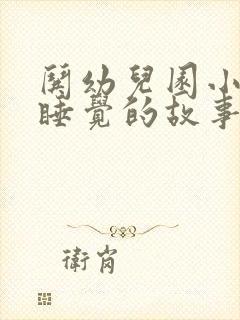 關幼兒園小
睡覺的故事
衛肖